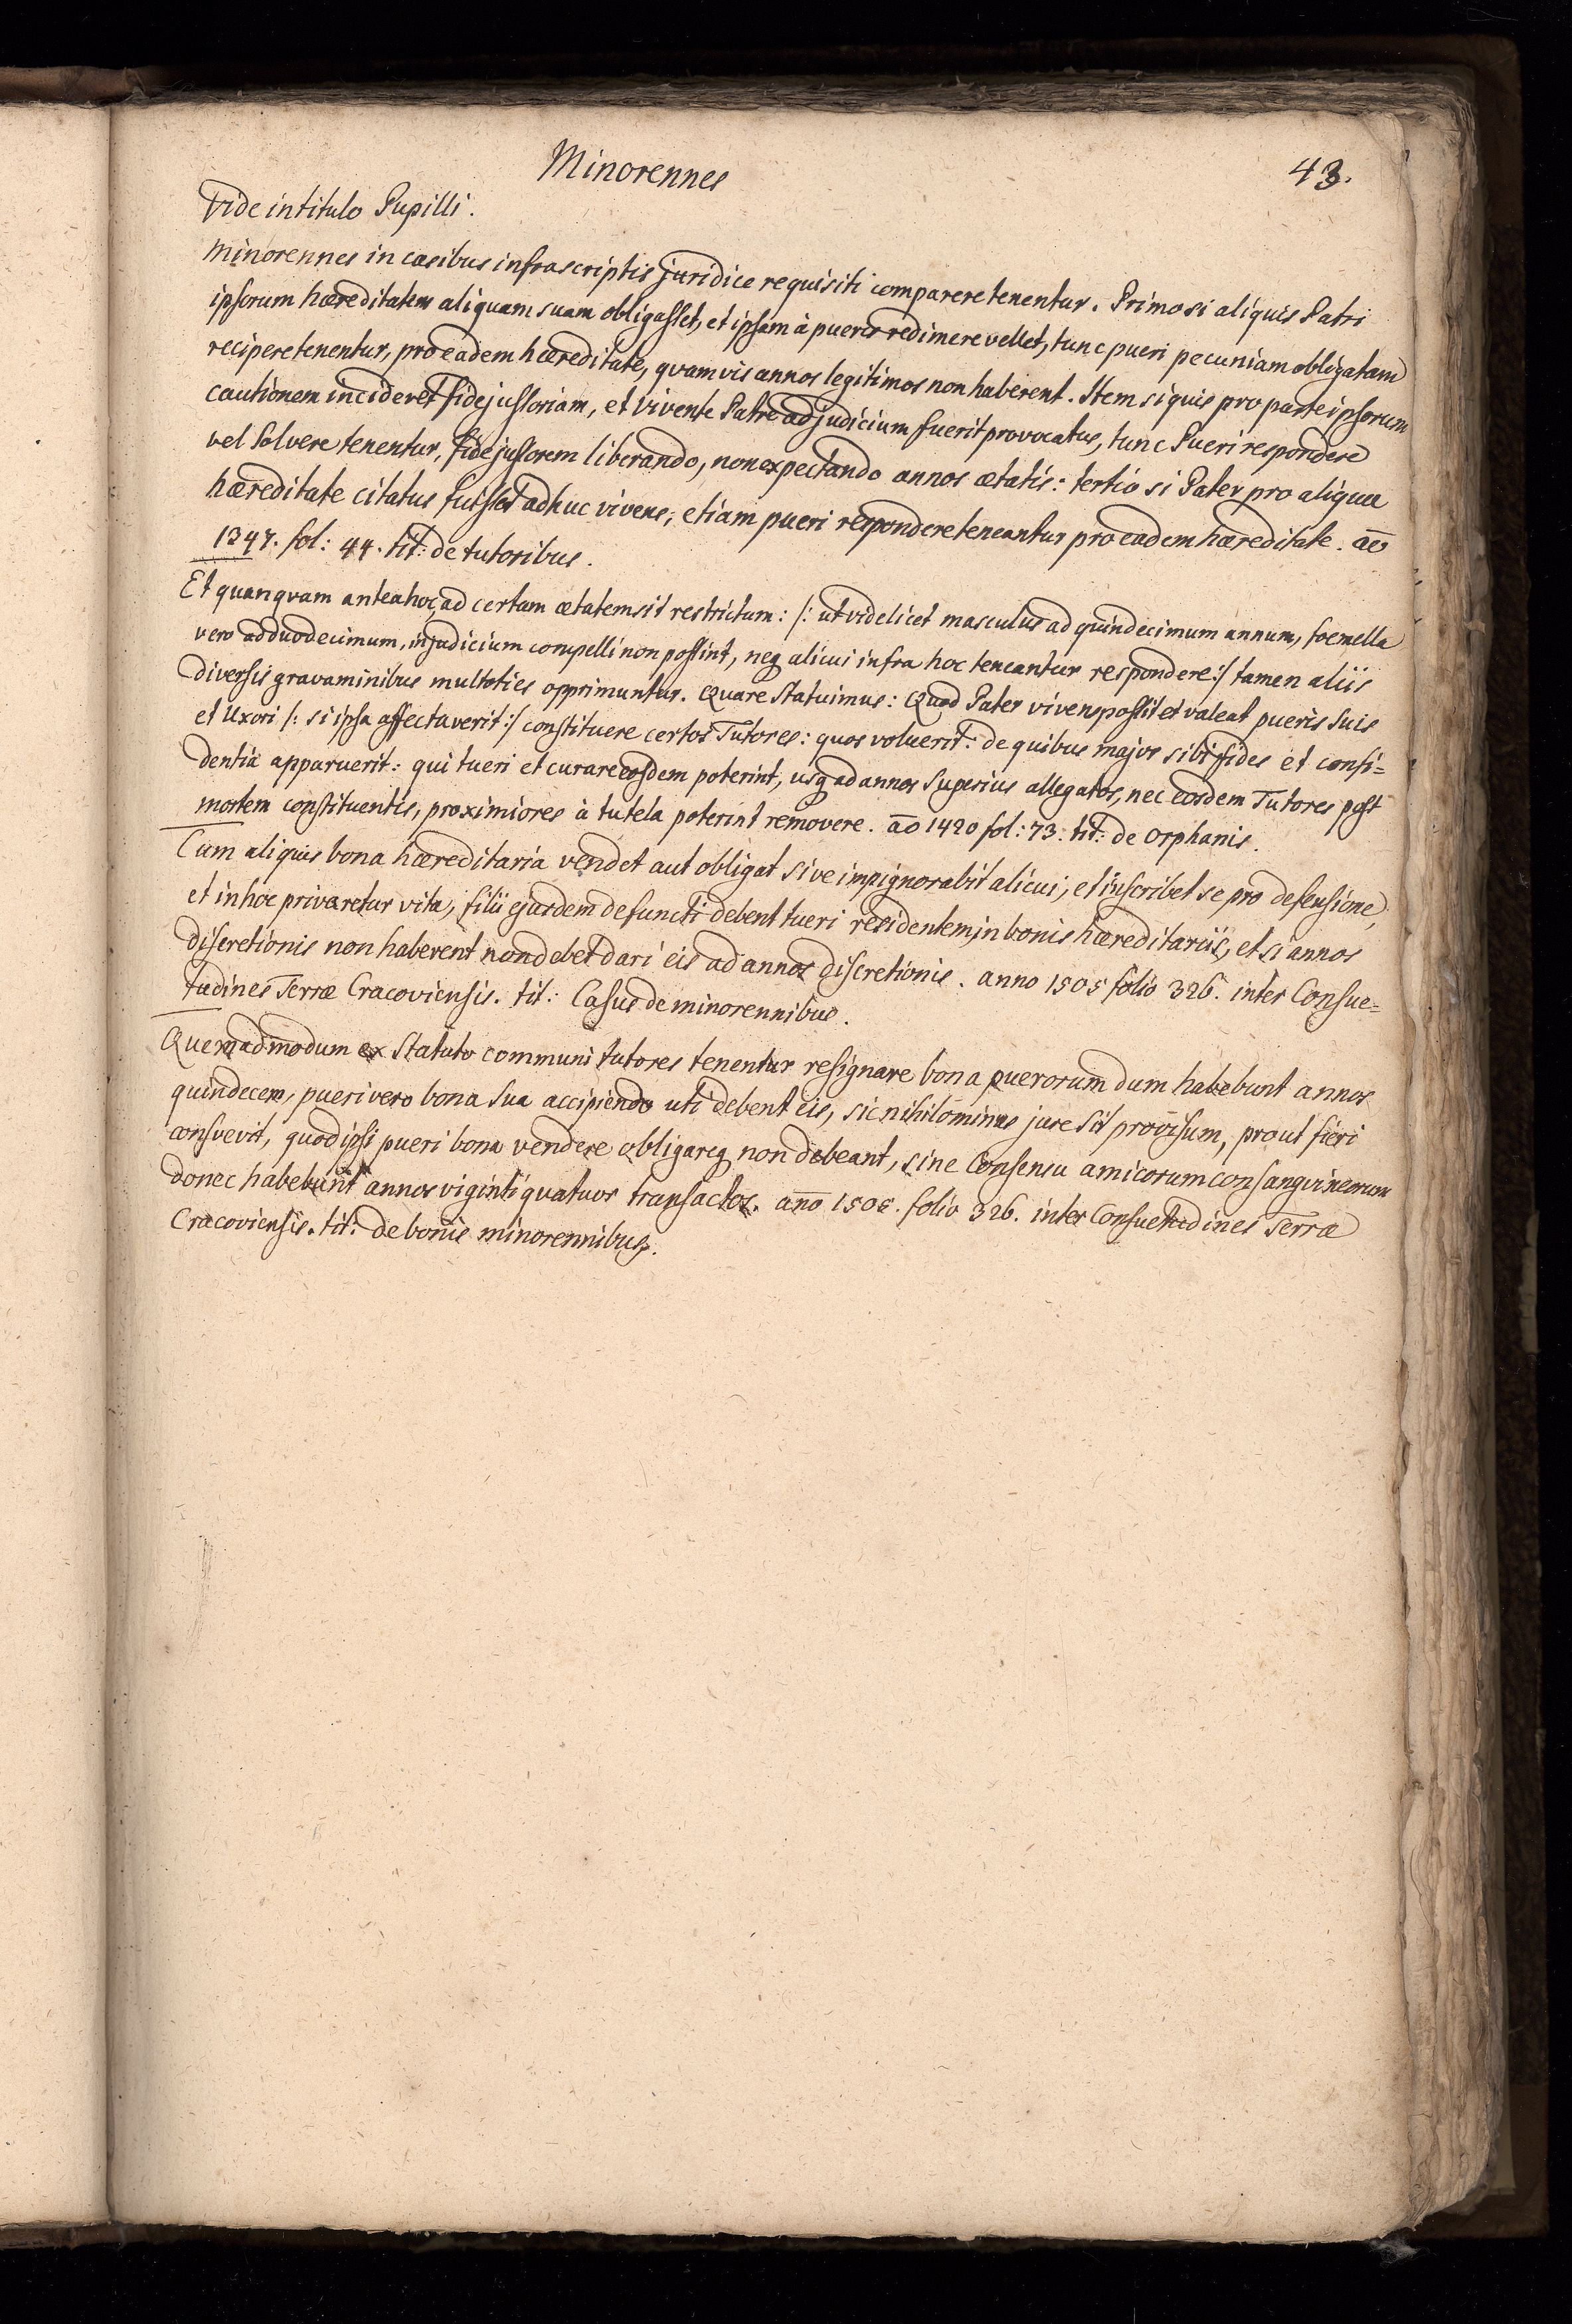 Minorennes
43.
Vide in titulo Pupilli.
Minorennes in casibus infrascriptis juridice requisiti comparere tenentur. Primo si aliquis Patri
ipsorum hæreditatem aliquam suam obligasset, et ipsam à pueris redimere vellet, tunc pueri pecuniam obligatam
recipere tenentur, pro eadem hæreditate, qvamvis annos legitimos non haberent. Item si quis pro parte ipsorum
cautionem incideret fidejussoriam, et vivente Patre ad judicium fuerit provocatus, tunc Pueri respondere
vel solvere tenentur, fidejussorem liberando, non expectando annos ætatis: tertio si Pater pro aliqua
hæreditate citatus fuisset adhuc vivens, etiam pueri respondere teneantur pro eadem hæreditate. aō
1347. fol: 44. tit: de tutoribus.
Et quanqvam antea hoc, ad certam ætatem sit restrictum: /: ut videlicet masculus ad quindecimum annum, foemella
vero ad duodecimum, in judicium compelli non possint, neq alicui infra hoc teneantur respondere:/ tamen aliis
diversis gravaminibus multoties opprimuntur. Quare statuimus: Quod Pater vivens possit et valeat pueris suis
et Uxori /: si ipsa affectaverit:/ constituere certos Tutores: quos voluerit: de quibus major sibi fides et confi=
dentia apparuerit: qui tueri et curare eosdem poterint, usq ad annos superius allegatos, nec eosdem Tutores post
mortem constituentis, proximiores à tutela poterint removere. aō 1420 fol: 73: tit: de Orphanis.
Cum aliquis bona hæreditaria vendet aut obligat sive impignorabit alicui, et inscribet se pro defensione,
et in hoc privaretur vita, filii ejusdem defuncti debent tueri residentem in bonis hæreditariis, et si annos
discretionis non haberent non debet dari eis ad annos discretionis. anno 1505 folio 326. inter Consue=
tudines Terræ Cracoviensis. tit: Casus de minorennibus.
Quemadmodum ex Statuto communi tutores tenentur resignare bona puerorum dum habebunt annos
quindecem, pueri vero bona sua accipiendo uti debent eis, sic nihilominus jure sit provisum, prout fieri
consvevit, quod ipsi pueri bona vendere obligareq non debeant, sine Consensu amicorum consangvineorum
donec habebunt annos viginti quatuor transactos. año 1505. folio 326. inter Consuetudines Terræ
Cracoviensis. tit: de bonis minorennibus.